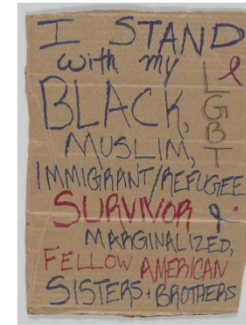 I STAND
with my
BLACK,
LGBT
MUSLIM,
IMMIGRANT/REFUGEE
SURVIVOR
MARGINALIZED,
FELLOW AMERICAN
SISTERS + BROTHERS